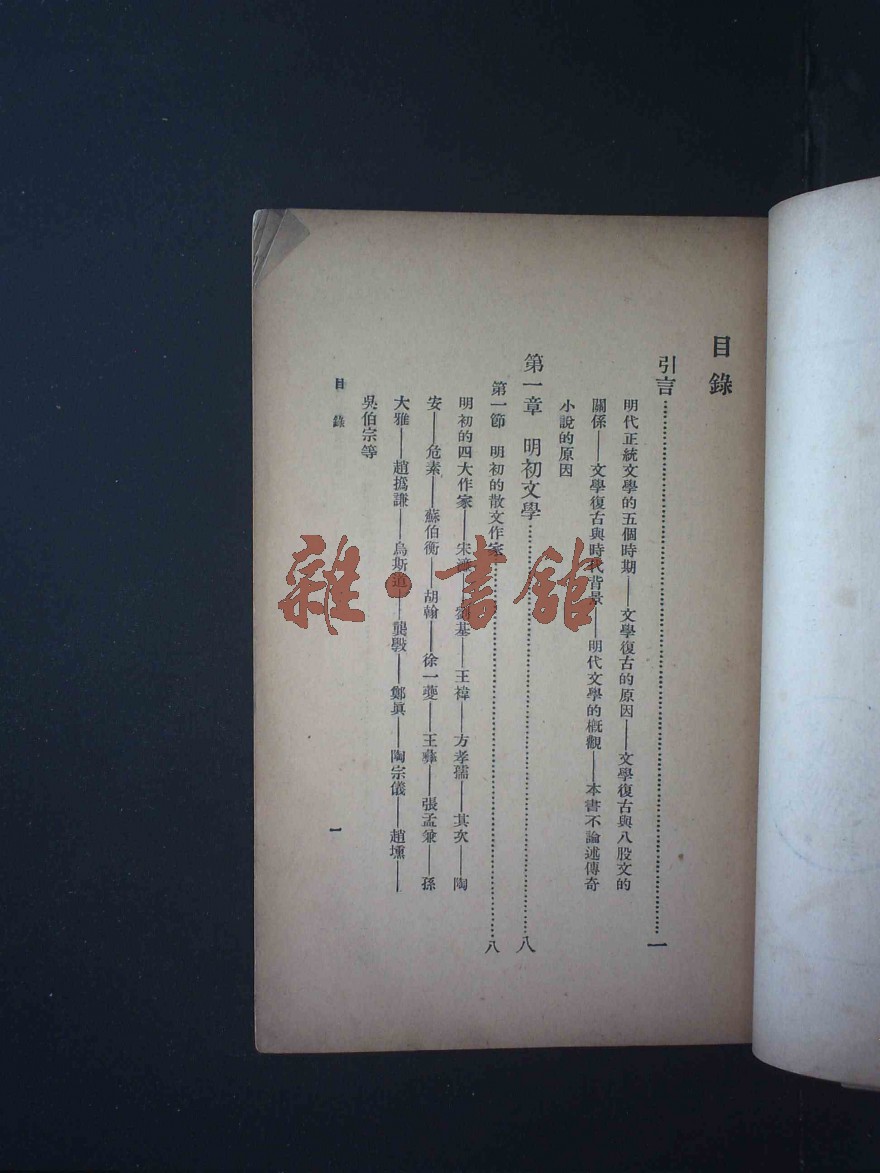 目錄
引言……………………………………一
明代正統文學的五個時期——文學復古的原因——文學復古與八股文的
關係——文學復古與時代背景——明代文學的概觀——本書不論述傳奇
小說的原因
第一章　明初文學……………………………………八
第一節　明初的散文作家……………………………………八
明初的四大作家——宋濂——劉基——王褘——方孝孺——其次——陶
安——危素——蘇伯衡——胡翰——徐一夔——王彝——張孟兼——孫
大雅——趙撝謙——烏斯道——龔斆——鄭眞——陶宗儀——趙壎——
吳伯宗等
目錄
一
雜·書館